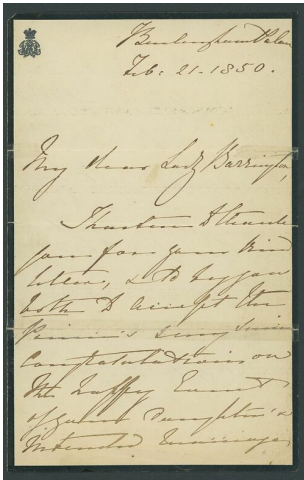 Buckingham Palace
Feb: 21 - 1850.
My dear Lady Barrington,
I hasten to thank
you for your kind
letter, & to beg you
both to accept the
Prince's & my sincere
congratulations on
the happy Event
of your Daughter's
intended marriage,